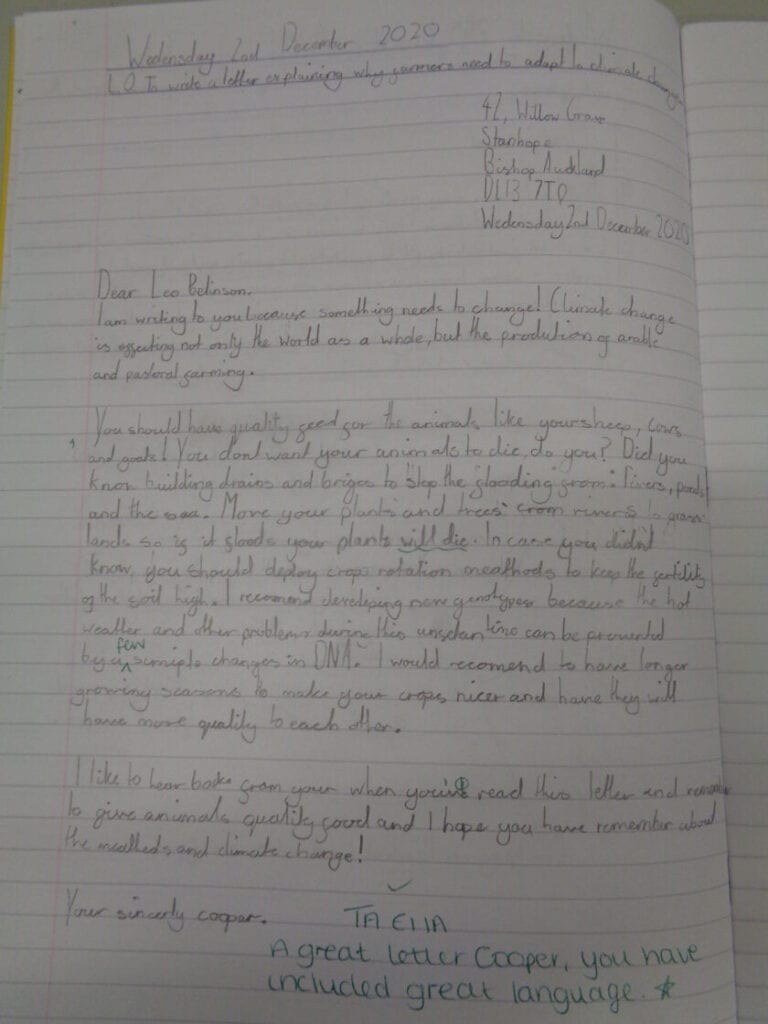 Wedensday 2nd December 2020
L.O To write a letter explaining why farmers need to adapt to climate change
42, Willow Grove
Stanhope
Bishop Auckland
DL13 7TQ
Wedensday 2nd December 2020
Dear Leo Belinson.
I am writing to you because something needs to change! Climate change
is effecting not only the world as a whole, but the prodution of arable
and pastoral farming.
You should have quality feed for the animals like your sheep, cows,
and goats! You dont want your animals to die, do you? Did you
know building drains and briges to stop the flooding from: rivers, ponds
and the sea. Move your plants and trees from rivers to grass
lands so if it floods your plants will die. In case you didn't
know, you should deploy crops rotation meathods to keep the fertility
of the soil high. I recomend developing new genotypes because the hot
weather and other problems during this time can be prevented
by a few simple changes in DNA. I would recomend to have longer
growing seasons to make your crops nicer and have they will
have more quality to each other.
I like to hear back from your when you've read this letter and remember
to give animals quality food and I hope you have remember about
the meathods and climate change!
Your sincerly cooper.
TA Ella
A great letter Cooper, you have
included great language.